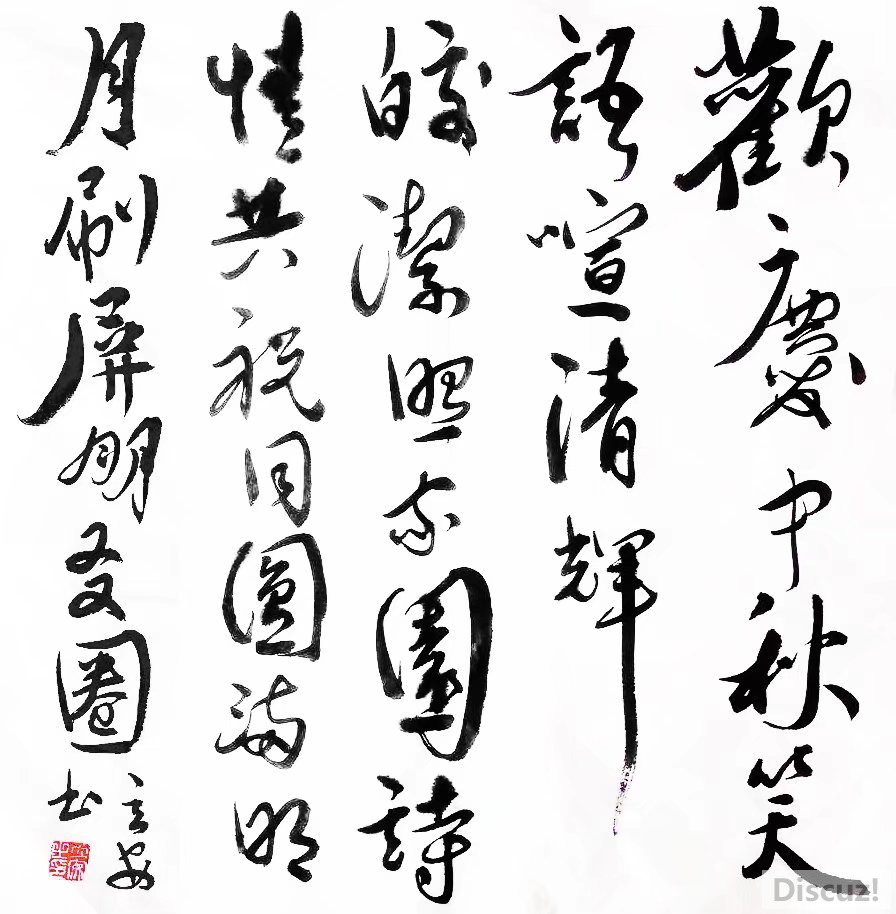 歡慶中秋笑
語喧清輝
皎潔照家園詩
情共祝同圓滿明
月刷屏朋友圈
书
Discuz!